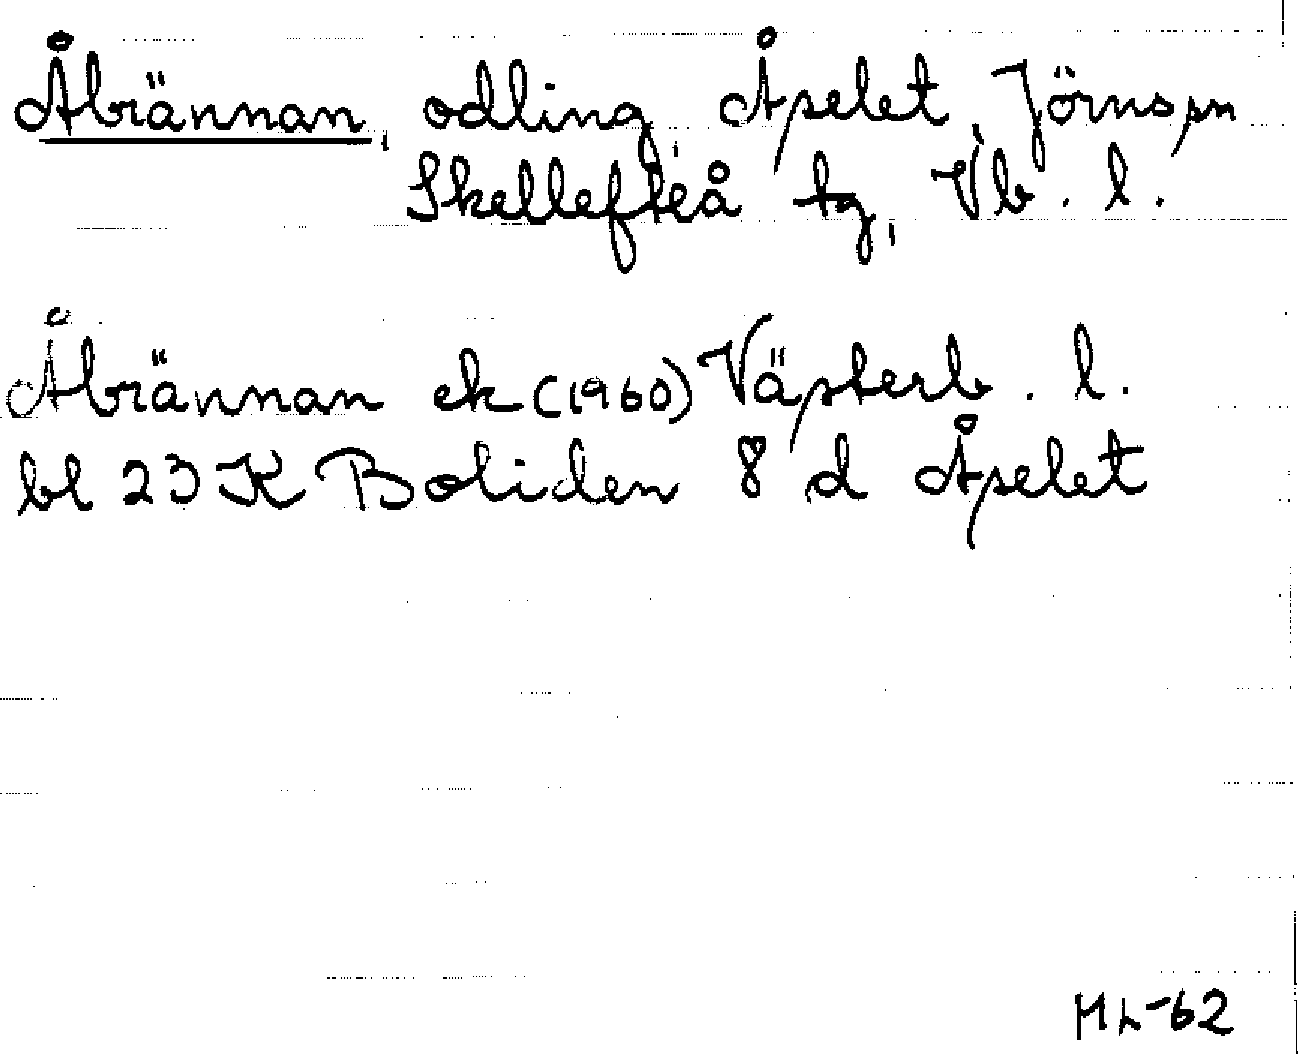 Åbrännan, odling, Åselet, Jörns sn
Skellefteå tg, Vb. l.
Åbrännan ek (1960) Västerb. l.
bl 23 K Boliden 8 d Åselet
HL-62